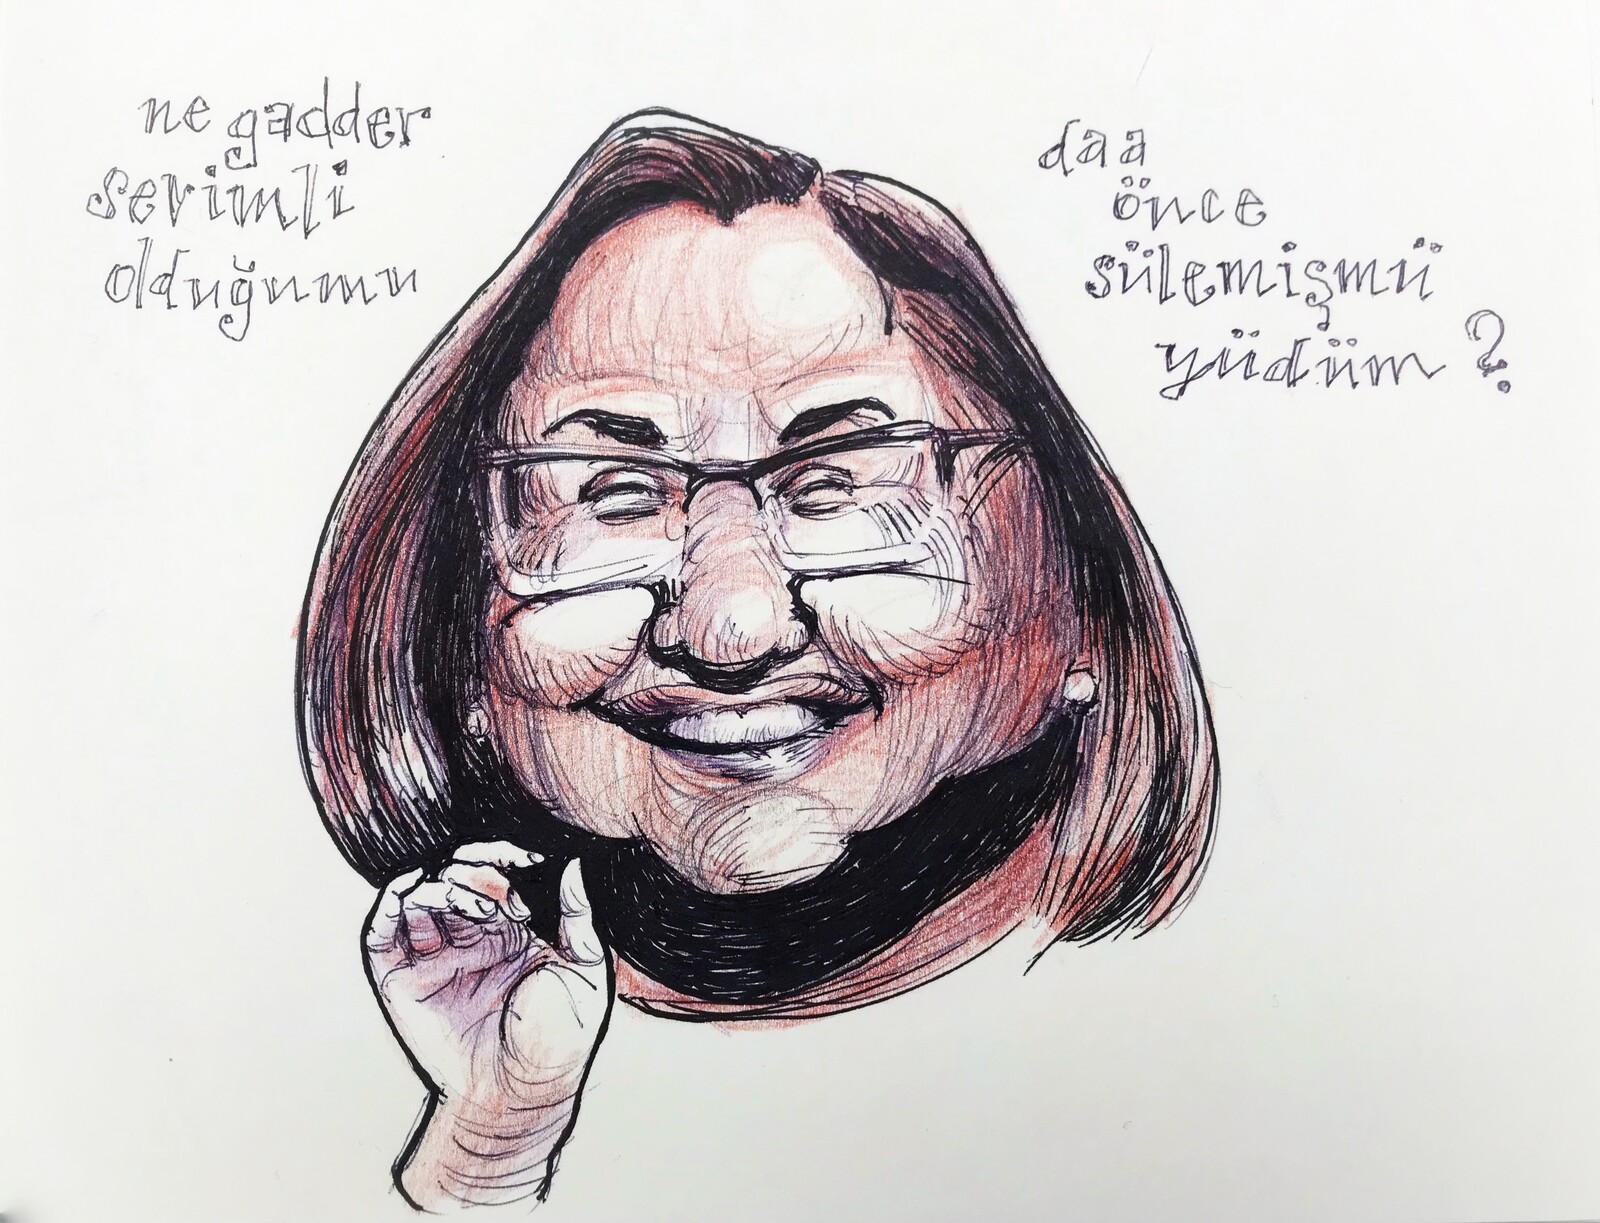 ne gadder
sevimli
olduğumu
daa
önce
sülemişmü
yüdüm?